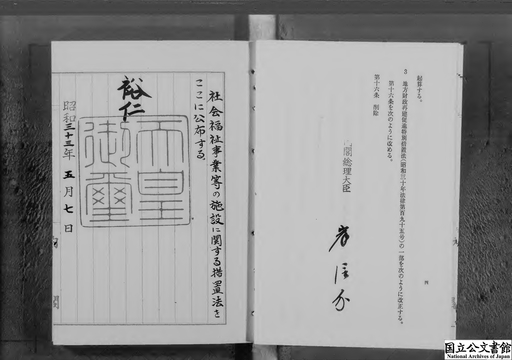 起算する。
3 地方財政再建促進特別措置法(昭和三十年法律第百九十五号)の一部を次のように改正する。
第十六条を次のように改める。
第十六条 削除
内閣総理大臣
岸信介
四
社会福祉事業等の施設に関する措置法を
ここに公布する。
裕仁
天皇
御璽
昭和三十三年五月七日
国立公文書館
National Archives of Japan